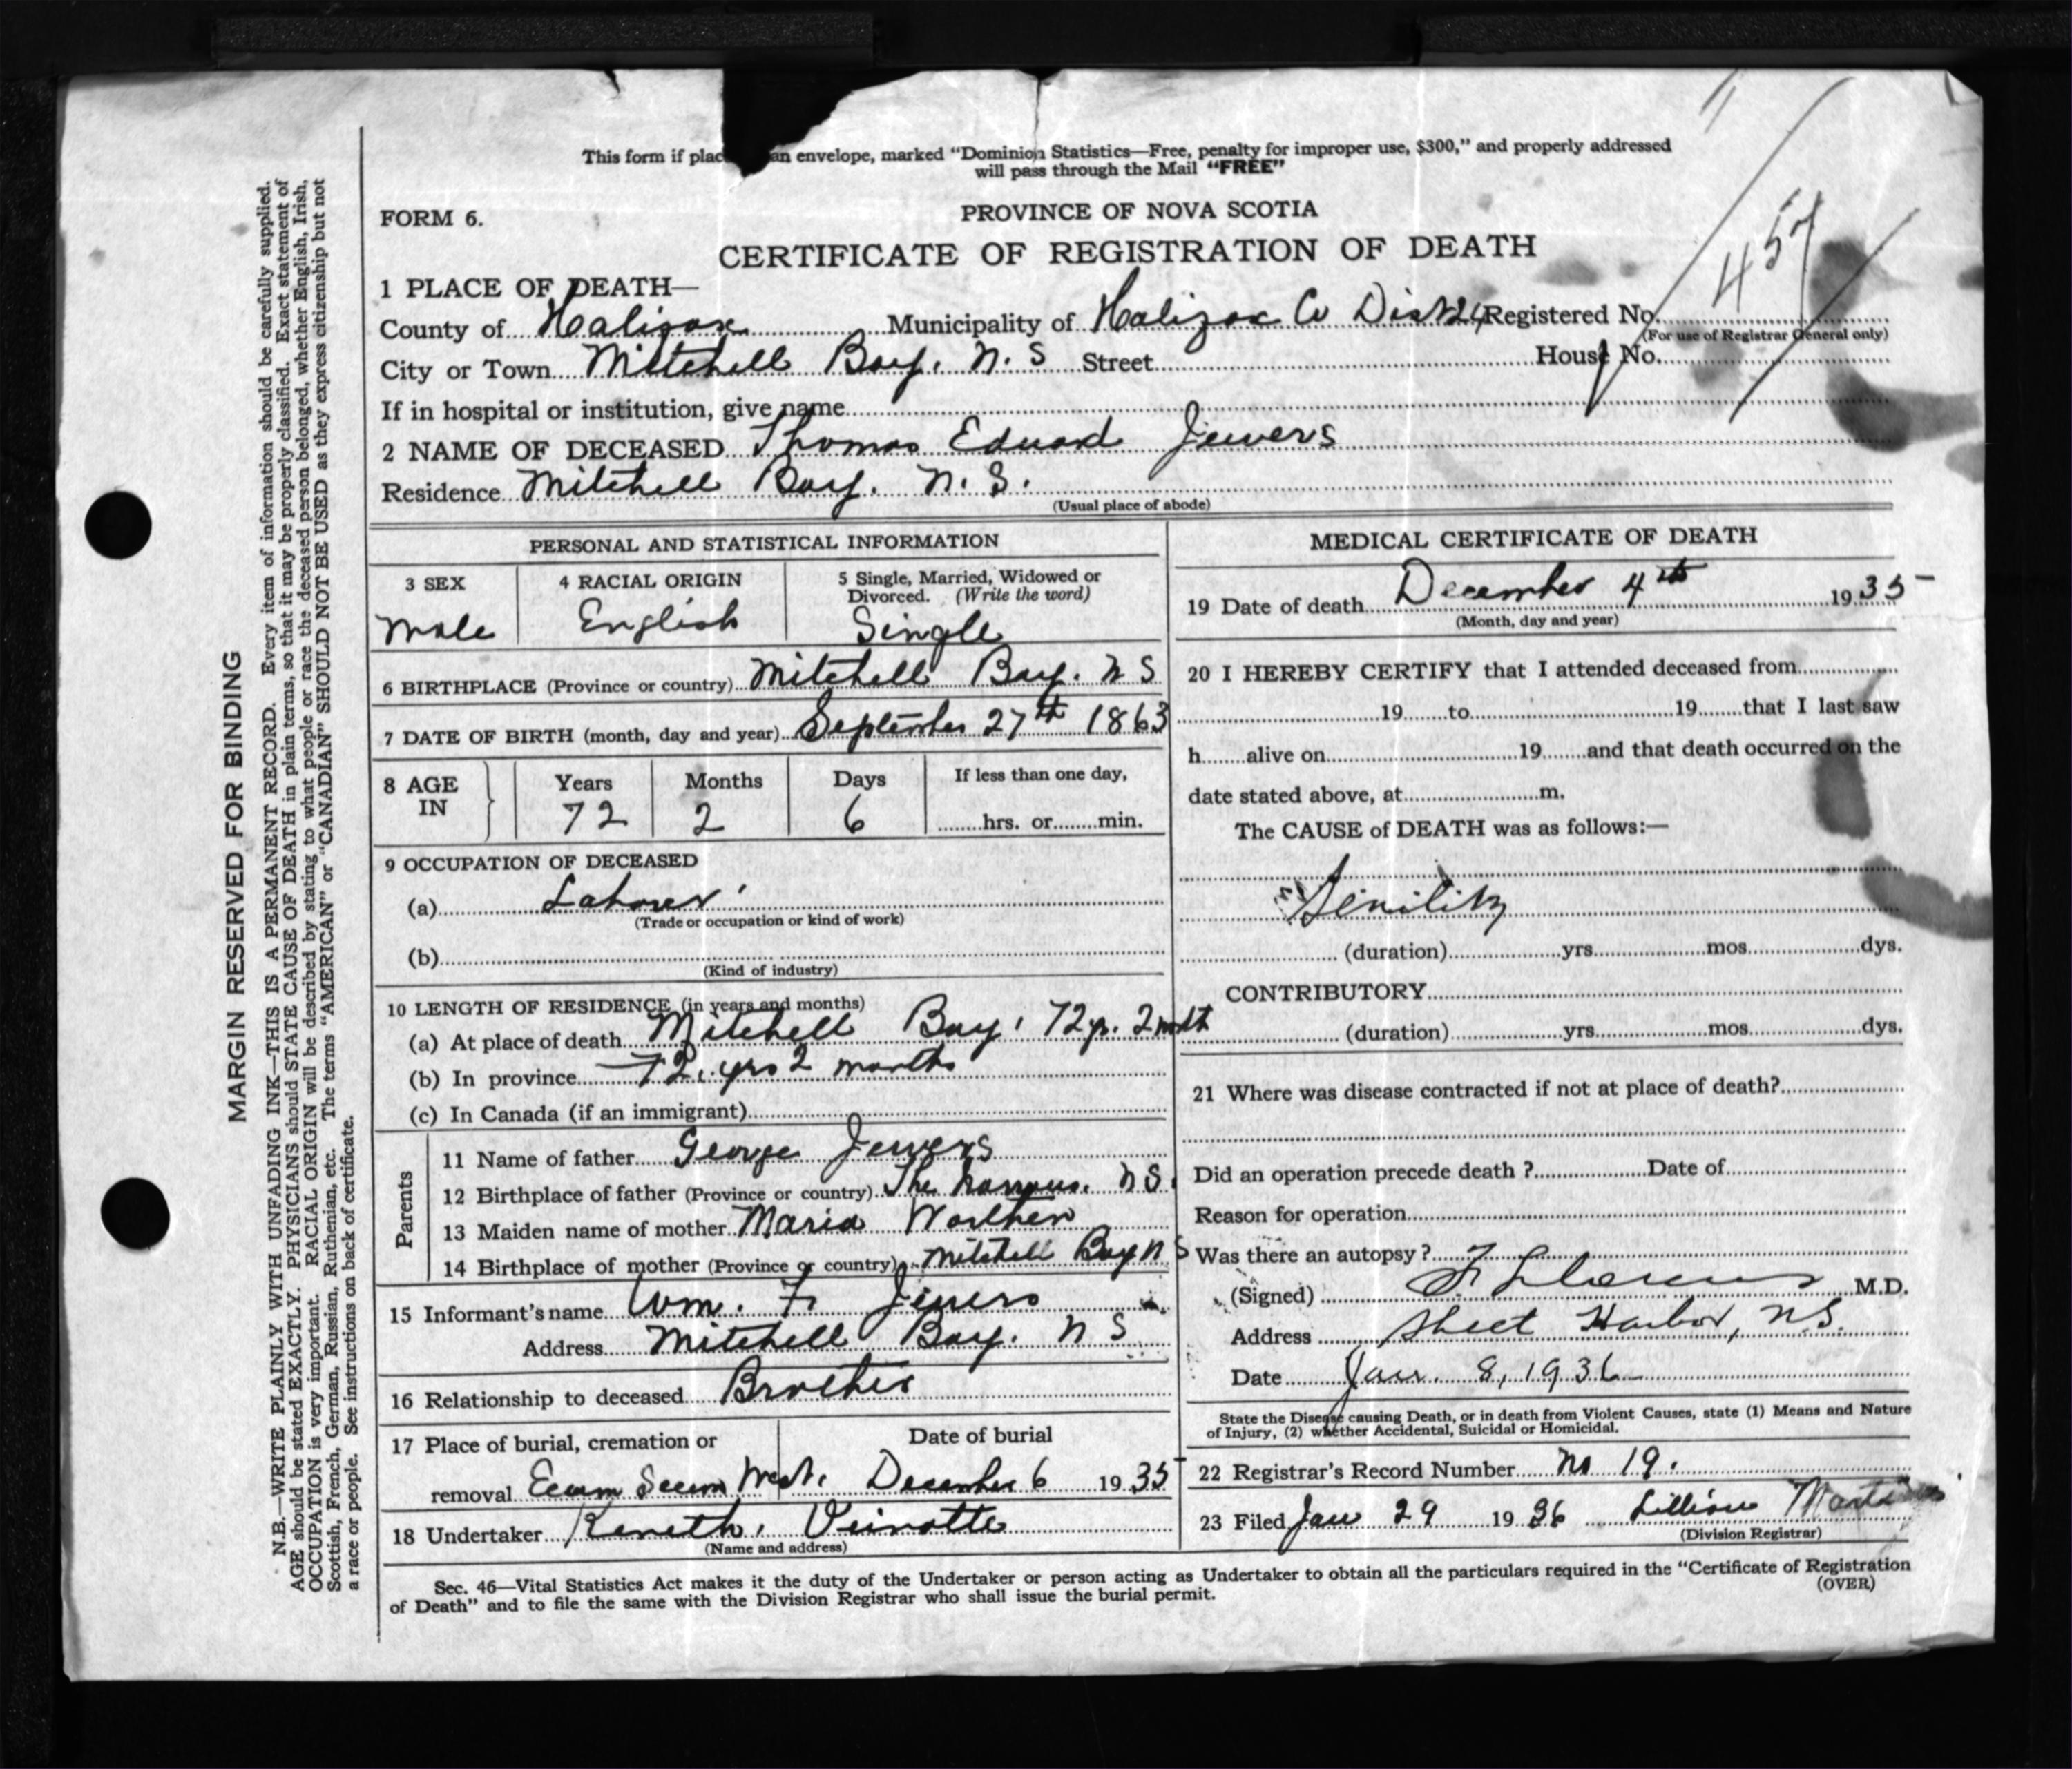 This form if plac an envelope, marked “Dominion Statistics—Free, penalty for improper use, $300,” and properly addressed
will pass through the Mail “FREE”
FORM 6.
PROVINCE OF NOVA SCOTIA
457
CERTIFICATE OF REGISTRATION OF DEATH
1 PLACE OF DEATH—
County of Halifax Municipality of Halifax Co Dist 24 Registered No.
(For use of Registrar General only)
City or Town Mitchell Bay. N.S Street House No.
If in hospital or institution, give name
2 NAME OF DECEASED Thomas Eduard Jewers
Residence Mitchell Bay. N.S.
(Usual place of abode)
PERSONAL AND STATISTICAL INFORMATION
3 SEX 4 RACIAL ORIGIN 5 Single, Married, Widowed or
Divorced. (Write the word)
Male English Single
6 BIRTHPLACE (Province or country) Mitchell Bay. N S
7 DATE OF BIRTH (month, day and year) September 27th 1863
8 AGE IN Years Months Days If less than one day,
72 2 6 hrs. or min.
9 OCCUPATION OF DECEASED
(a) Laborer
(Trade or occupation or kind of work)
(b)
(Kind of industry)
10 LENGTH OF RESIDENCE (in years and months)
(a) At place of death Mitchell Bay, 72 yr. 2 mth
(b) In province 72 yrs 2 months
(c) In Canada (if an immigrant)
Parents
11 Name of father George Jewers
12 Birthplace of father (Province or country) The N.S.
13 Maiden name of mother Maria
14 Birthplace of mother (Province or country) Mitchell Bay N S
15 Informant's name Wm. F. Jewers
Address Mitchell Bay. N S
16 Relationship to deceased Brother
17 Place of burial, cremation or Date of burial
removal Ecum Secum West. December 6 1935
18 Undertaker Keneth, Veinotte
(Name and address)
MEDICAL CERTIFICATE OF DEATH
19 Date of death December 4th 1935
(Month, day and year)
20 I HEREBY CERTIFY that I attended deceased from
19 to 19 that I last saw
h alive on 19 and that death occurred on the
date stated above, at m.
The CAUSE of DEATH was as follows:—
Senility
(duration) yrs. mos. dys.
CONTRIBUTORY
(duration) yrs. mos. dys.
21 Where was disease contracted if not at place of death?
Did an operation precede death ? Date of
Reason for operation
Was there an autopsy ?
(Signed) M.D.
Address Sheet Harbor, N.S.
Date Jan. 8, 1936
State the Disease causing Death, or in death from Violent Causes, state (1) Means and Nature
of Injury, (2) whether Accidental, Suicidal or Homicidal.
22 Registrar's Record Number No 19.
23 Filed Jan 29 1936 Lillian
(Division Registrar)
Sec. 46—Vital Statistics Act makes it the duty of the Undertaker or person acting as Undertaker to obtain all the particulars required in the “Certificate of Registration
of Death” and to file the same with the Division Registrar who shall issue the burial permit.
(OVER)
MARGIN RESERVED FOR BINDING
N.B.—WRITE PLAINLY WITH UNFADING INK—THIS IS A PERMANENT RECORD. Every item of information should be carefully supplied.
AGE should be stated EXACTLY. PHYSICIANS should STATE CAUSE OF DEATH in plain terms, so that it may be properly classified. Exact statement of
OCCUPATION is very important. RACIAL ORIGIN will be described by stating to what people or race the deceased person belonged, whether English, Irish,
Scottish, French, German, Russian, Ruthenian, etc. The terms “AMERICAN” or “CANADIAN” SHOULD NOT BE USED as they express citizenship but not
a race or people. See instructions on back of certificate.